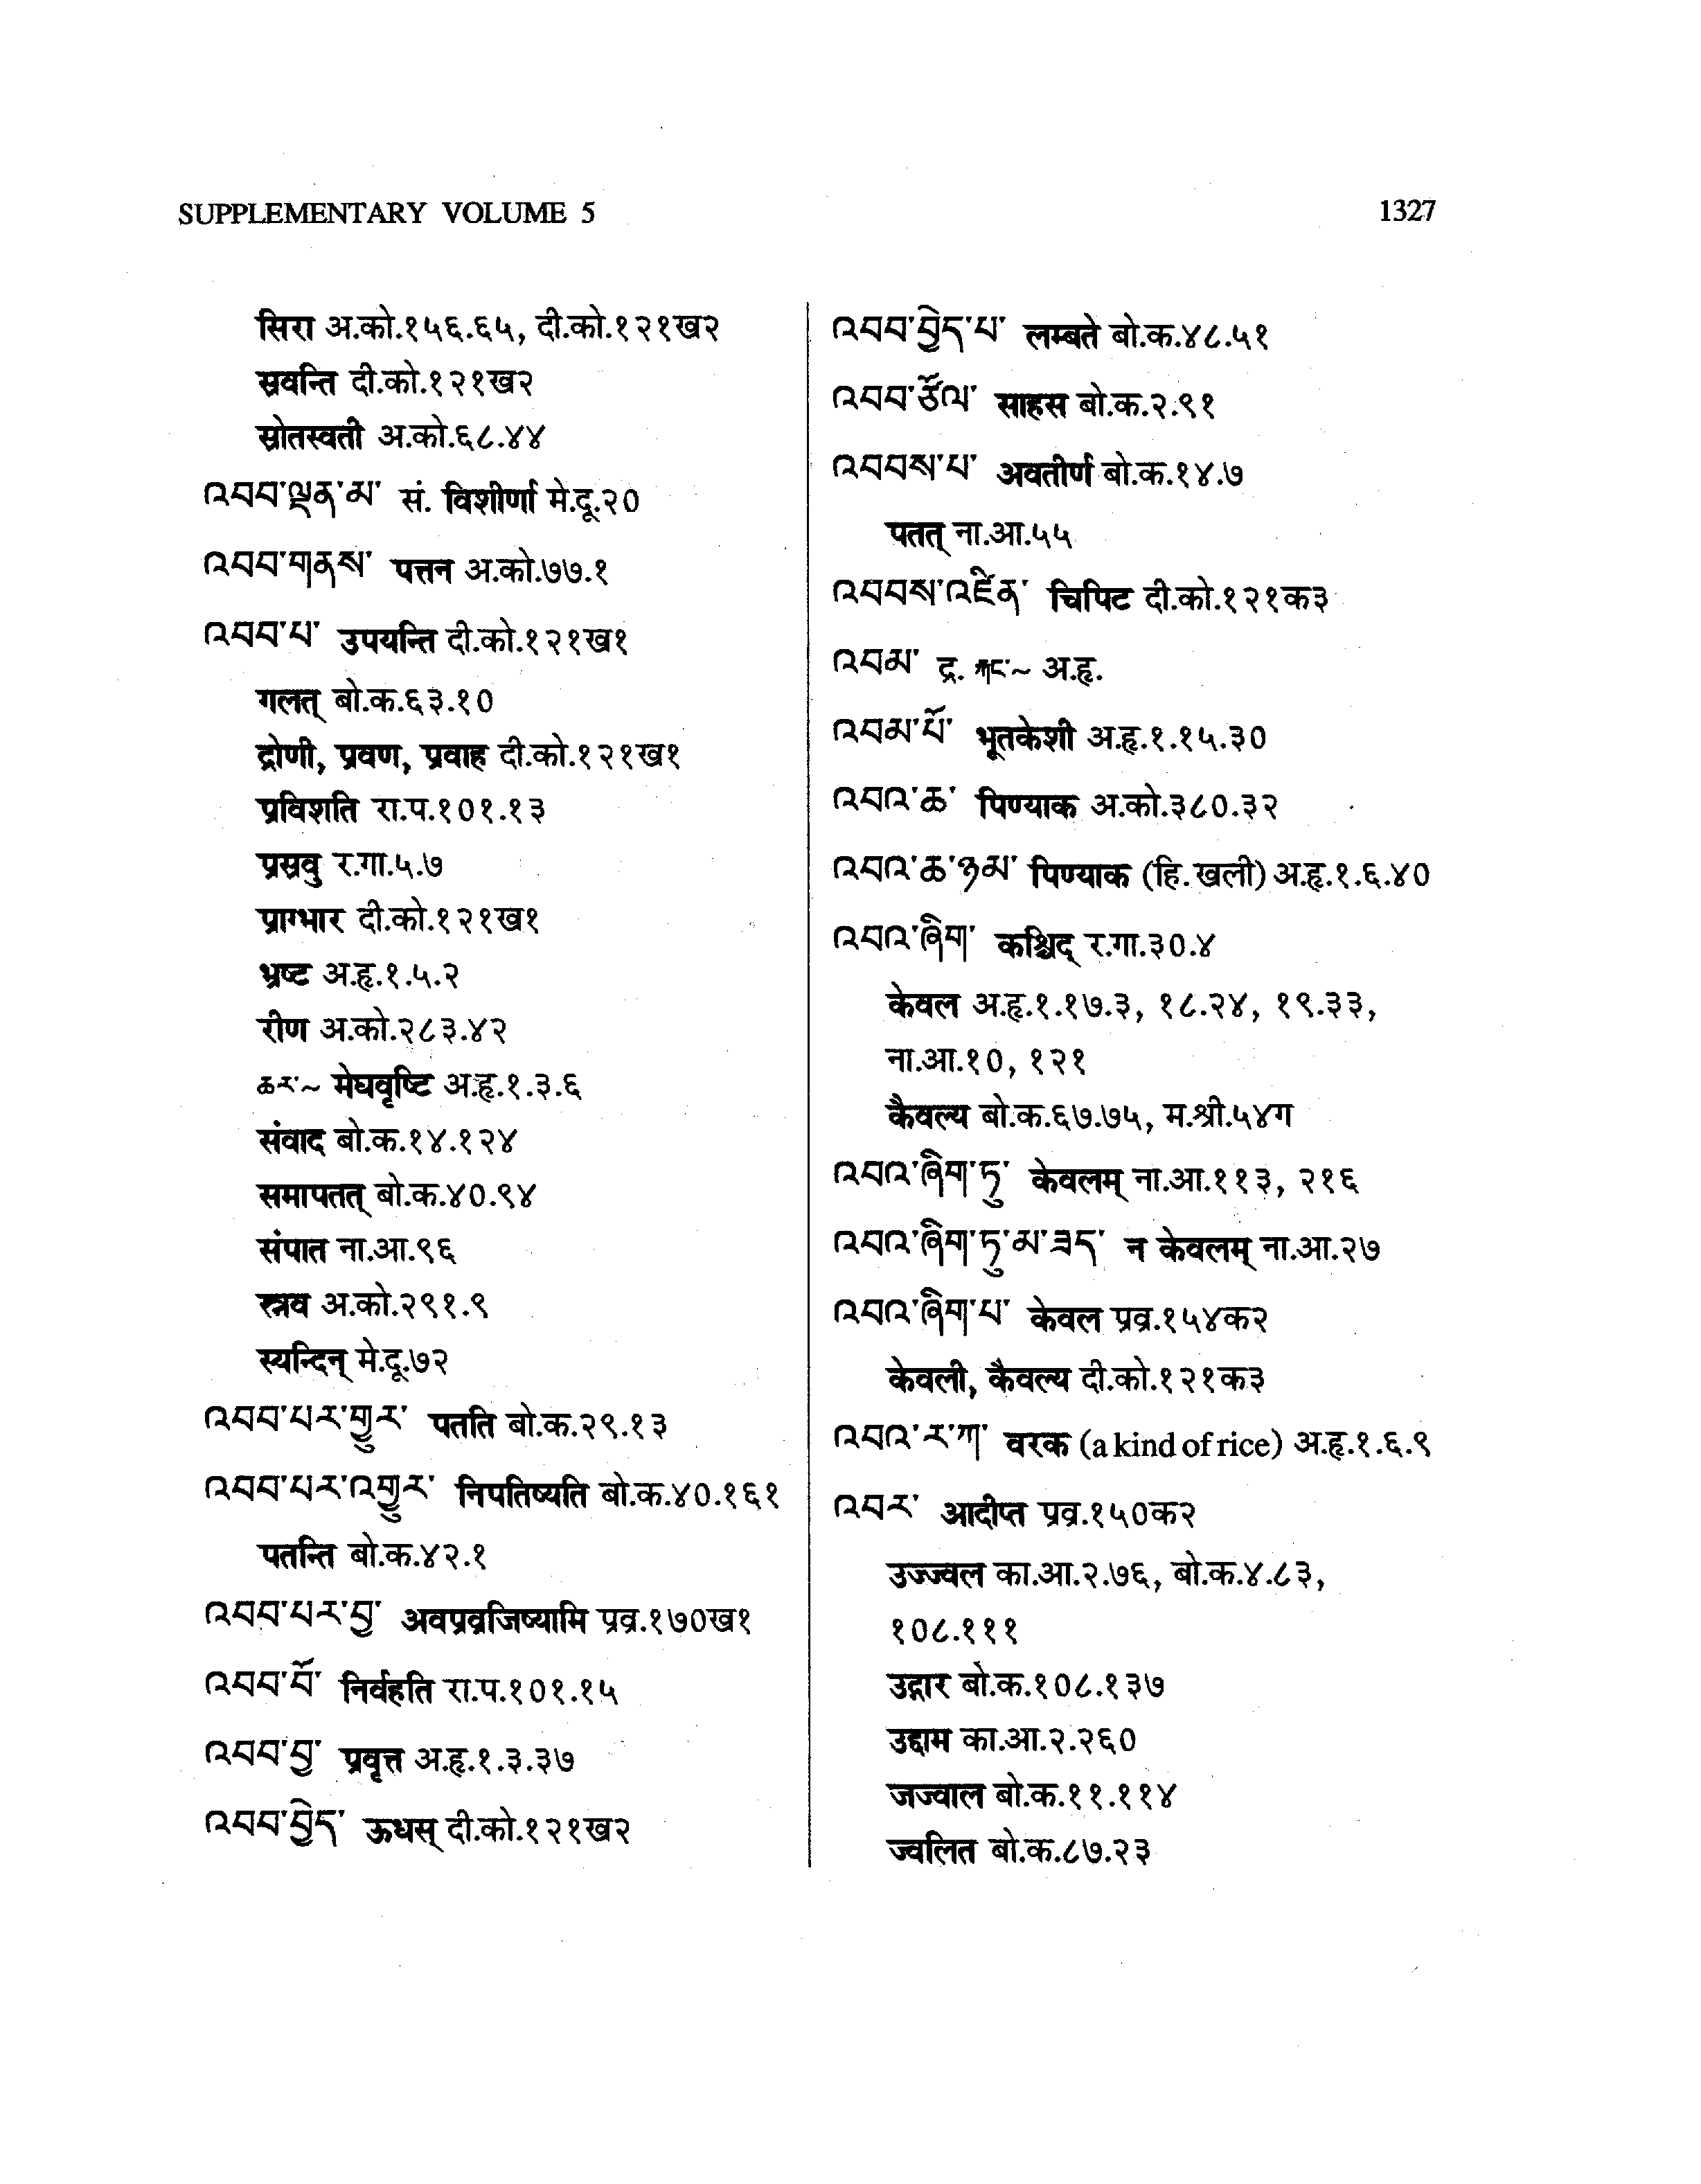 SUPPLEMENTARY VOLUME 5
1327
सिरा अ.को.१५६.६५, दी.को.१२१ख२
स्रवन्ति दी.को.१२१ख२
स्रोतस्वती अ.को.६८.४४
འབབ་ལྡན་མ་ सं. विशीर्णा मे.दू.२०
འབབ་གནས་ पत्तन अ.को.७७.१
འབབ་པ་ उपयन्ति दी.को.१२१ख१
गलत् बो.क.६३.१०
द्रोणी, प्रवण, प्रवाह दी.को.१२१ख१
प्रविशति रा.प.१०१.१३
प्रस्रवु र.गा.५.७
प्राग्भार दी.को.१२१ख१
भ्रष्ट अ.हृ.१.५.२
रीण अ.को.२८३.४२
ཆར་~ मेघवृष्टि अ.हृ.१.३.६
संवाद बो.क.१४.१२४
समापतत् बो.क.४०.९४
संपात ना.आ.९६
स्नव अ.को.२९१.९
स्यन्दिन् मे.दू.७२
འབབ་པར་གྱུར་ पतति बो.क.२९.१३
འབབ་པར་འགྱུར་ निपतिष्यति बो.क.४०.१६१
पतन्ति बो.क.४२.१
འབབ་པར་བྱ་ अवप्रव्रजिष्यामि प्रव्र.१७०ख१
འབབ་བོ་ निर्वहति रा.प.१०१.१५
འབབ་བྱ་ प्रवृत्त अ.हृ.१.३.३७
འབབ་བྱེད་ ऊधस् दी.को.१२१ख२
འབབ་བྱེད་པ་ लम्बते बो.क.४८.५१
འབབ་ཙོལ་ साहस बो.क.२.९१
འབབས་པ་ अवतीर्ण बो.क.१४.७
पतत् ना.आ.५५
འབབས་འཛིན་ चिपिट दी.को.१२१क३
འབམ་ द्र. ཀང་~ अ.हृ.
འབམ་པོ་ भूतकेशी अ.हृ.१.१५.३०
འབའ་ཆ་ पिण्याक अ.को.३८०.३२
འབའ་ཆ་ཉམ་ पिण्याक (हि. खली) अ.हृ.१.६.४०
འབའ་ཞིག་ कश्चिद् र.गा.३०.४
केवल अ.हृ.१.१७.३, १८.२४, १९.३३,
ना.आ.१०, १२१
कैवल्य बो.क.६७.७५, म.श्री.५४ग
འབའ་ཞིག་ཏུ་ केवलम् ना.आ.११३, २१६
འབའ་ཞིག་ཏུ་མ་ཟད་ न केवलम् ना.आ.२७
འབའ་ཞིག་པ་ केवल प्रव्र.१५४क२
केवली, कैवल्य दी.को.१२१क३
འབའ་ར་ཀ་ वरक (a kind of rice) अ.हृ.१.६.९
འབར་ आदीप्त प्रव्र.१५०क२
उज्ज्वल का.आ.२.७६, बो.क.४.८३,
१०८.१११
उद्गार बो.क.१०८.१३७
उद्दाम का.आ.२.२६०
जज्वाल बो.क.११.११४
ज्वलित बो.क.८७.२३